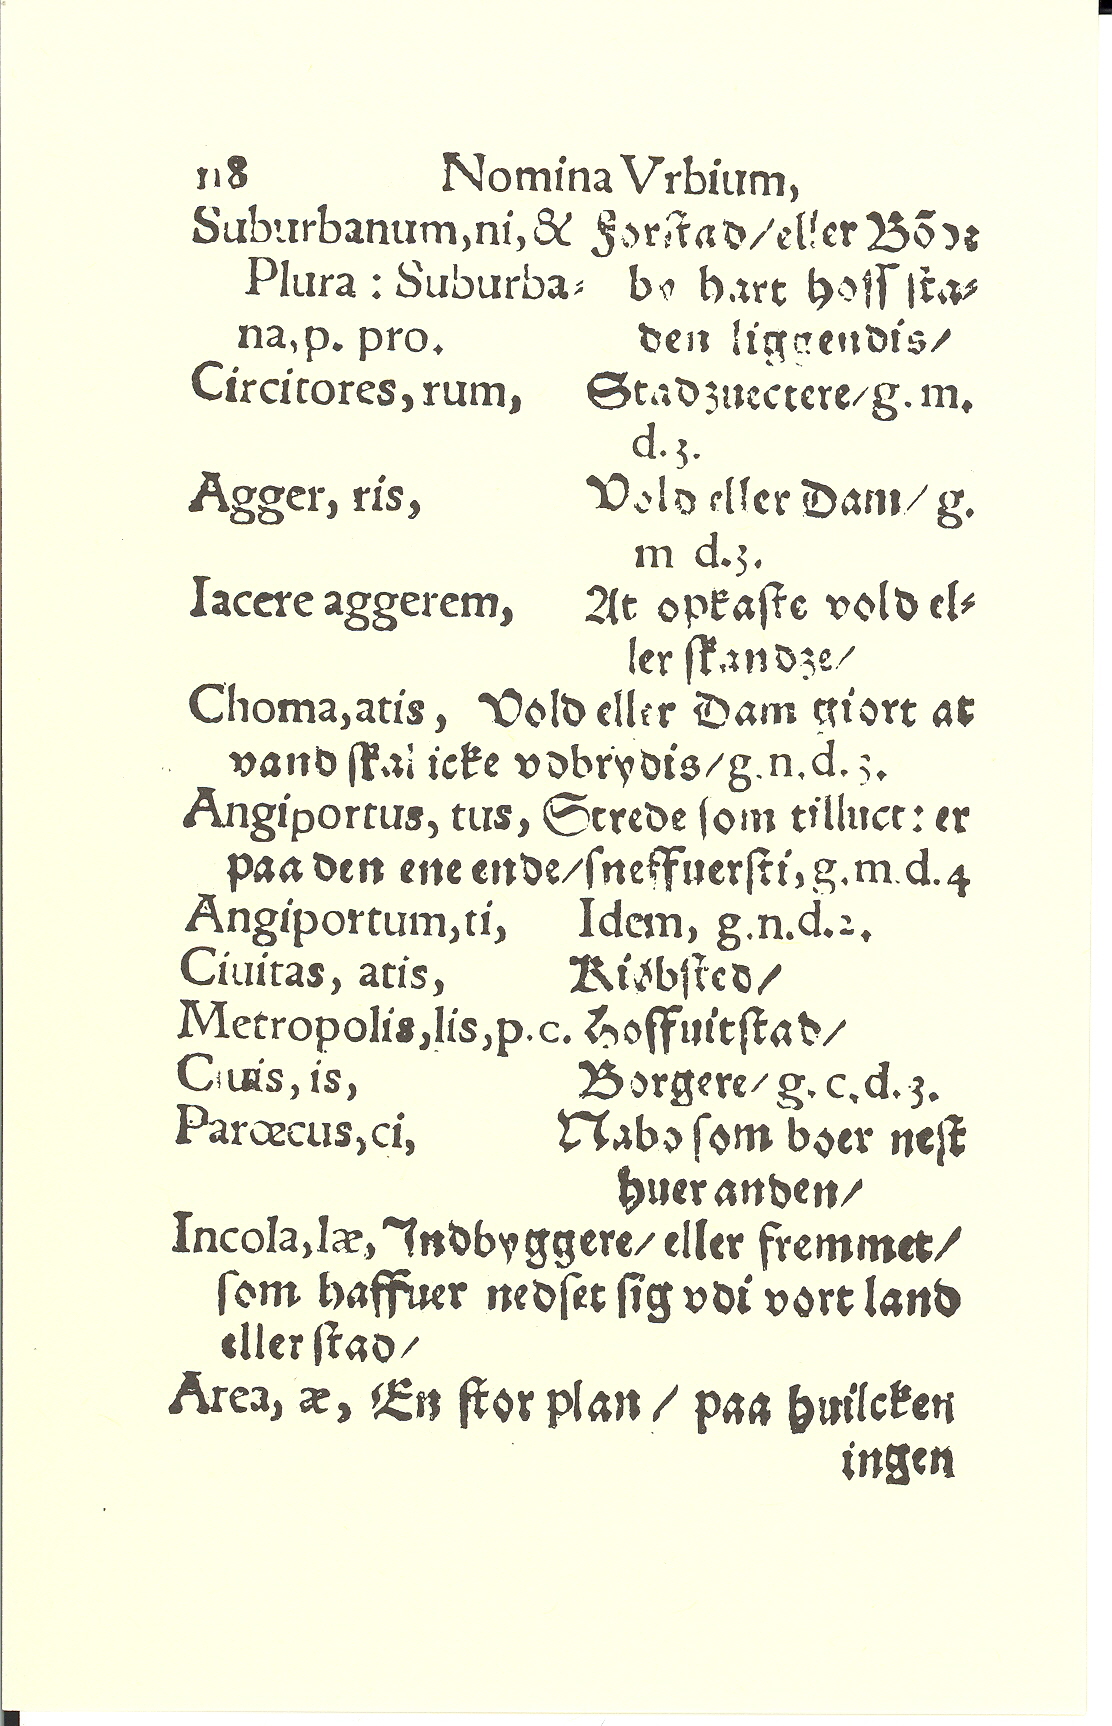 118 Nomina Vrbium,
Suburbanum,ni,& Forstad/eller Bőde
Plura : Suburba- by hart hoss sta-
na,p. pro. den liggendis/
Circitores, rum, Stadzuectere/g. m.
d.3.
Agger, ris, Vold eller Dam/ g.
m d.3.
Iacere aggerem, At opkaste vold el-
ler skandze/
Choma,atis, Vold eller Dam giort at
vand skal icke vdbrydis/g.n.d.3.
Angiportus, tus, Strede som tilluct: er
paa den ene ende/sneffuersti,g.m.d.4
Angiportum,ti, Idem, g.n.d.2.
Ciuitas, atis, Kiøbsted/
Metropolis,lis,p.c. Hoffuitstad/
Ciuis, is, Borgere/ g. c.d.3.
Parœcus,ci, Nabo som boer nest
huer anden/
Incola,læ, Indbyggere/ eller fremmet/
som haffuer nedset sig vdi vort land
eller stad/
Area, æ, En stor plan / paa huilcken
ingen